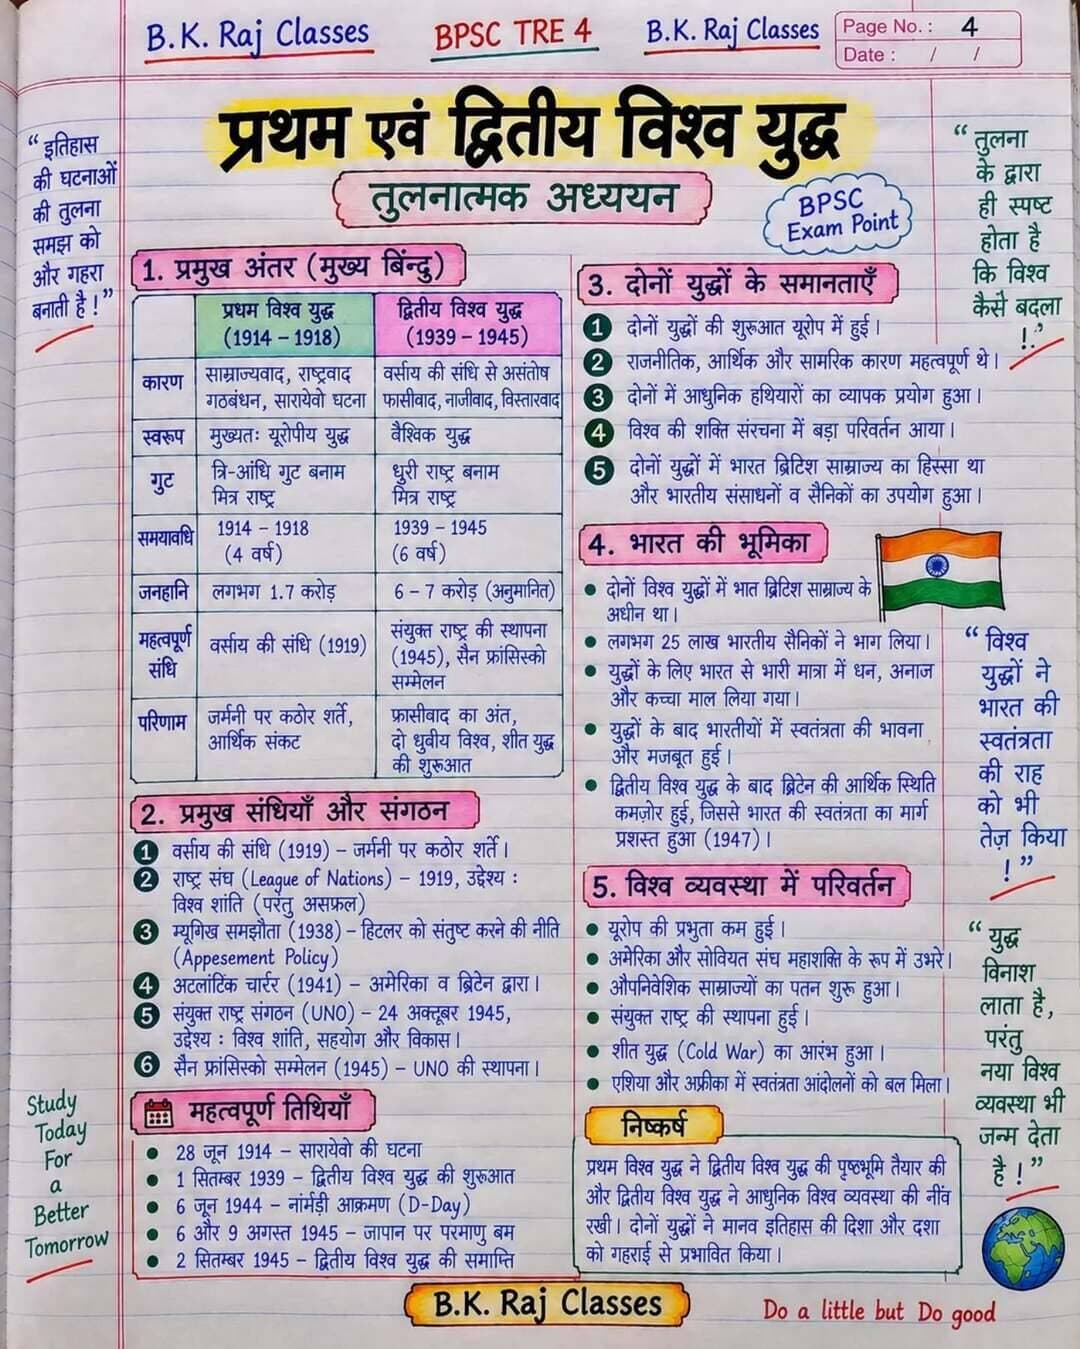 B.K. Raj Classes
BPSC TRE 4
B.K. Raj Classes
Page No. : 4
Date : / /
प्रथम एवं द्वितीय विश्व युद्ध
तुलनात्मक अध्ययन
BPSC
Exam Point
“ इतिहास
की घटनाओं
की तुलना
समझ को
और गहरा
बनाती है ! ”
“ तुलना
के द्वारा
ही स्पष्ट
होता है
कि विश्व
कैसे बदला
!.”
1. प्रमुख अंतर (मुख्य बिंन्दु)
प्रथम विश्व युद्ध
(1914 – 1918)
द्वितीय विश्व युद्ध
(1939 – 1945)
कारण
साम्राज्यवाद, राष्ट्रवाद
गठबंधन, सारायेवो घटना
वर्साय की संधि से असंतोष
फासीवाद, नाजीवाद, विस्तारवाद
स्वरूप
मुख्यतः यूरोपीय युद्ध
वैश्विक युद्ध
गुट
त्रि-आंधि गुट बनाम
मित्र राष्ट्र
धुरी राष्ट्र बनाम
मित्र राष्ट्र
समयावधि
1914 – 1918
(4 वर्ष)
1939 – 1945
(6 वर्ष)
जनहानि
लगभग 1.7 करोड़
6 – 7 करोड़ (अनुमानित)
महत्वपूर्ण
संधि
वर्साय की संधि (1919)
संयुक्त राष्ट्र की स्थापना
(1945), सैन फ्रांसिस्को
सम्मेलन
परिणाम
जर्मनी पर कठोर शर्ते,
आर्थिक संकट
फ्रासीबाद का अंत,
दो धुबीय विश्व, शीत युद्ध
की शुरूआत
2. प्रमुख संधियाँ और संगठन
1 वर्साय की संधि (1919) – जर्मनी पर कठोर शर्ते।
2 राष्ट्र संघ (League of Nations) – 1919, उद्देश्य :
विश्व शांति (परंतु असफ्रल)
3 म्यूगिख समझौता (1938) – हिटलर को संतुष्ट करने की नीति
(Appesement Policy)
4 अटलांटिक चार्टर (1941) – अमेरिका व ब्रिटेन द्वारा।
5 संयुक्त राष्ट्र संगठन (UNO) – 24 अक्टूबर 1945,
उद्देश्य : विश्व शांति, सहयोग और विकास।
6 सैन फ्रांसिस्को सम्मेलन (1945) – UNO की स्थापना।
महत्वपूर्ण तिथियाँ
• 28 जून 1914 – सारायेवो की घटना
• 1 सितम्बर 1939 – द्वितीय विश्व युद्ध की शुरूआत
• 6 जून 1944 – नांर्मडी आक्रमण (D-Day)
• 6 और 9 अगस्त 1945 – जापान पर परमाणु बम
• 2 सितम्बर 1945 – द्वितीय विश्व युद्ध की समाप्ति
3. दोनों युद्धों के समानताएँ
1 दोनों युद्धों की शुरूआत यूरोप में हुई।
2 राजनीतिक, आर्थिक और सामरिक कारण महत्वपूर्ण थे।
3 दोनों में आधुनिक हथियारों का व्यापक प्रयोग हुआ।
4 विश्व की शक्ति संरचना में बड़ा परिवर्तन आया।
5 दोनों युद्धों में भारत ब्रिटिश साम्राज्य का हिस्सा था
और भारतीय संसाधनों व सैनिकों का उपयोग हुआ।
4. भारत की भूमिका
• दोनों विश्व युद्धों में भात ब्रिटिश साम्राज्य के
अधीन था।
• लगभग 25 लाख भारतीय सैनिकों ने भाग लिया।
• युद्धों के लिए भारत से भारी मात्रा में धन, अनाज
और कच्चा माल लिया गया।
• युद्धों के बाद भारतीयों में स्वतंत्रता की भावना
और मजबूत हुई।
• द्वितीय विश्व युद्ध के बाद ब्रिटेन की आर्थिक स्थिति
कमज़ोर हुई, जिससे भारत की स्वतंत्रता का मार्ग
प्रशस्त हुआ (1947)।
5. विश्व व्यवस्था में परिवर्तन
• यूरोप की प्रभुता कम हुई।
• अमेरिका और सोवियत संघ महाशक्ति के रूप में उभरे।
• औपनिवेशिक साम्राज्यों का पतन शुरू हुआ।
• संयुक्त राष्ट्र की स्थापना हुई।
• शीत युद्ध (Cold War) का आरंभ हुआ।
• एशिया और अफ्रीका में स्वतंत्रता आंदोलनों को बल मिला।
निष्कर्ष
प्रथम विश्व युद्ध ने द्वितीय विश्व युद्ध की पृष्ठभूमि तैयार की
और द्वितीय विश्व युद्ध ने आधुनिक विश्व व्यवस्था की नींव
रखी। दोनों युद्धों ने मानव इतिहास की दिशा और दशा
को गहराई से प्रभावित किया।
“ विश्व
युद्धों ने
भारत की
स्वतंत्रता
की राह
को भी
तेज़ किया
! ”
“ युद्ध
विनाश
लाता है,
परंतु
नया विश्व
व्यवस्था भी
जन्म देता
है ! ”
Study
Today
For
a
Better
Tomorrow
B.K. Raj Classes
Do a little but Do good